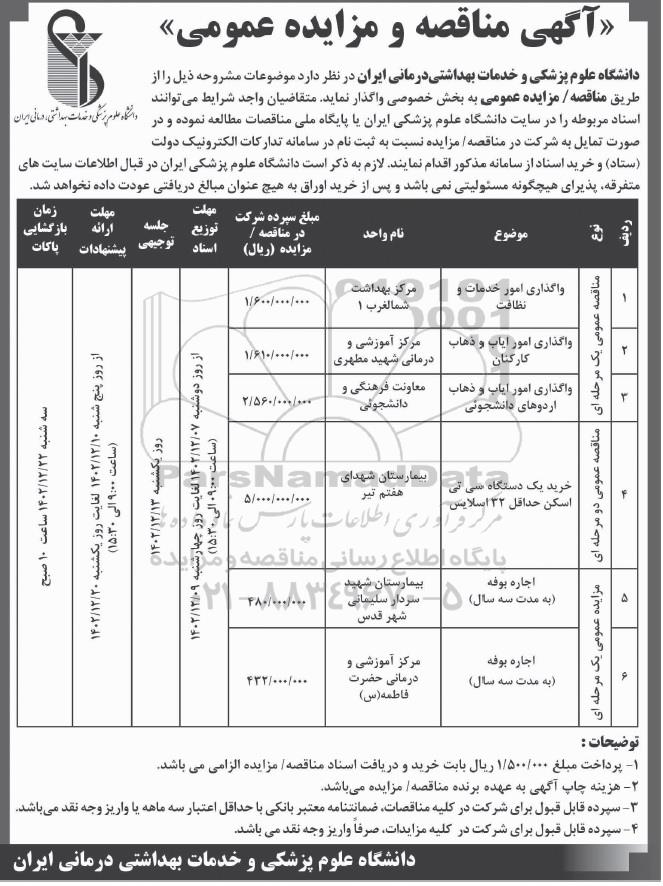 «آگهی مناقصه و مزایده عمومی»
دانشگاه علوم پزشکی و خدمات بهداشتی، درمانی ایران
دانشگاه علوم پزشکی و خدمات بهداشتی‌درمانی ایران در نظر دارد موضوعات مشروحه ذیل را از
طریق مناقصه/ مزایده عمومی به بخش خصوصی واگذار نماید. متقاضیان واجد شرایط می‌توانند
اسناد مربوطه را در سایت دانشگاه علوم پزشکی ایران یا پایگاه ملی مناقصات مطالعه نموده و در
صورت تمایل به شرکت در مناقصه/ مزایده نسبت به ثبت نام در سامانه تدارکات الکترونیک دولت
(ستاد) و خرید اسناد از سامانه مذکور اقدام نمایند. لازم به ذکر است دانشگاه علوم پزشکی ایران در قبال اطلاعات سایت های
متفرقه، پذیرای هیچگونه مسئولیتی نمی باشد و پس از خرید اوراق به هیچ عنوان مبالغ دریافتی عودت داده نخواهد شد.
ردیف
نوع
موضوع
نام واحد
مبلغ سپرده شرکت
در مناقصه /
مزایده (ریال)
مهلت
توزیع
اسناد
جلسه
توجیهی
مهلت
ارائه
پیشنهادات
زمان
بازگشایی
پاکات
۱
مناقصه عمومی یک مرحله ای
واگذاری امور خدمات و
نظافت
مرکز بهداشت
شمالغرب ۱
۱/۶۰۰/۰۰۰/۰۰۰
از روز دوشنبه ۱۴۰۲/۱۲/۰۷ لغایت روز چهارشنبه ۱۴۰۲/۱۲/۰۹
(ساعت ۰۹:۰۰ الی ۱۵:۳۰)
روز یکشنبه ۱۴۰۲/۱۲/۱۳
از روز پنج شنبه ۱۴۰۲/۱۲/۱۰ لغایت روز یکشنبه ۱۴۰۲/۱۲/۲۰
(ساعت ۹:۰۰ الی ۱۵:۳۰)
سه شنبه ۱۴۰۲/۱۲/۲۲ ساعت ۱۰ صبح
۲
واگذاری امور ایاب و ذهاب
کارکنان
مرکز آموزشی و
درمانی شهید مطهری
۱/۶۱۰/۰۰۰/۰۰۰
۳
واگذاری امور ایاب و ذهاب
اردوهای دانشجوئی
معاونت فرهنگی و
دانشجوئی
۲/۵۶۰/۰۰۰/۰۰۰
۴
مناقصه عمومی دو مرحله ای
خرید یک دستگاه سی تی
اسکن حداقل ۳۲ اسلایس
بیمارستان شهدای
هفتم تیر
۵/۰۰۰/۰۰۰/۰۰۰
۵
مزایده عمومی یک مرحله ای
اجاره بوفه
(به مدت سه سال)
بیمارستان شهید
سردار سلیمانی
شهر قدس
۴۸۰/۰۰۰/۰۰۰
۶
اجاره بوفه
(به مدت سه سال)
مرکز آموزشی و
درمانی حضرت
فاطمه(س)
۴۳۲/۰۰۰/۰۰۰
ParsNamadData
مرکز فرآوری اطلاعات پارس نماد داده ها
پایگاه اطلاع رسانی مناقصه و مزایده
۰۲۱-۸۸۳۴۹۶۷۰-۵
توضیحات :
۱- پرداخت مبلغ ۱/۵۰۰/۰۰۰ ریال بابت خرید و دریافت اسناد مناقصه/ مزایده الزامی می باشد.
۲- هزینه چاپ آگهی به عهده برنده مناقصه/ مزایده می‌باشد.
۳- سپرده قابل قبول برای شرکت در کلیه مناقصات، ضمانتنامه معتبر بانکی با حداقل اعتبار سه ماهه یا واریز وجه نقد می‌باشد.
۴- سپرده قابل قبول برای شرکت در کلیه مزایدات، صرفاً واریز وجه نقد می باشد.
دانشگاه علوم پزشکی و خدمات بهداشتی درمانی ایران